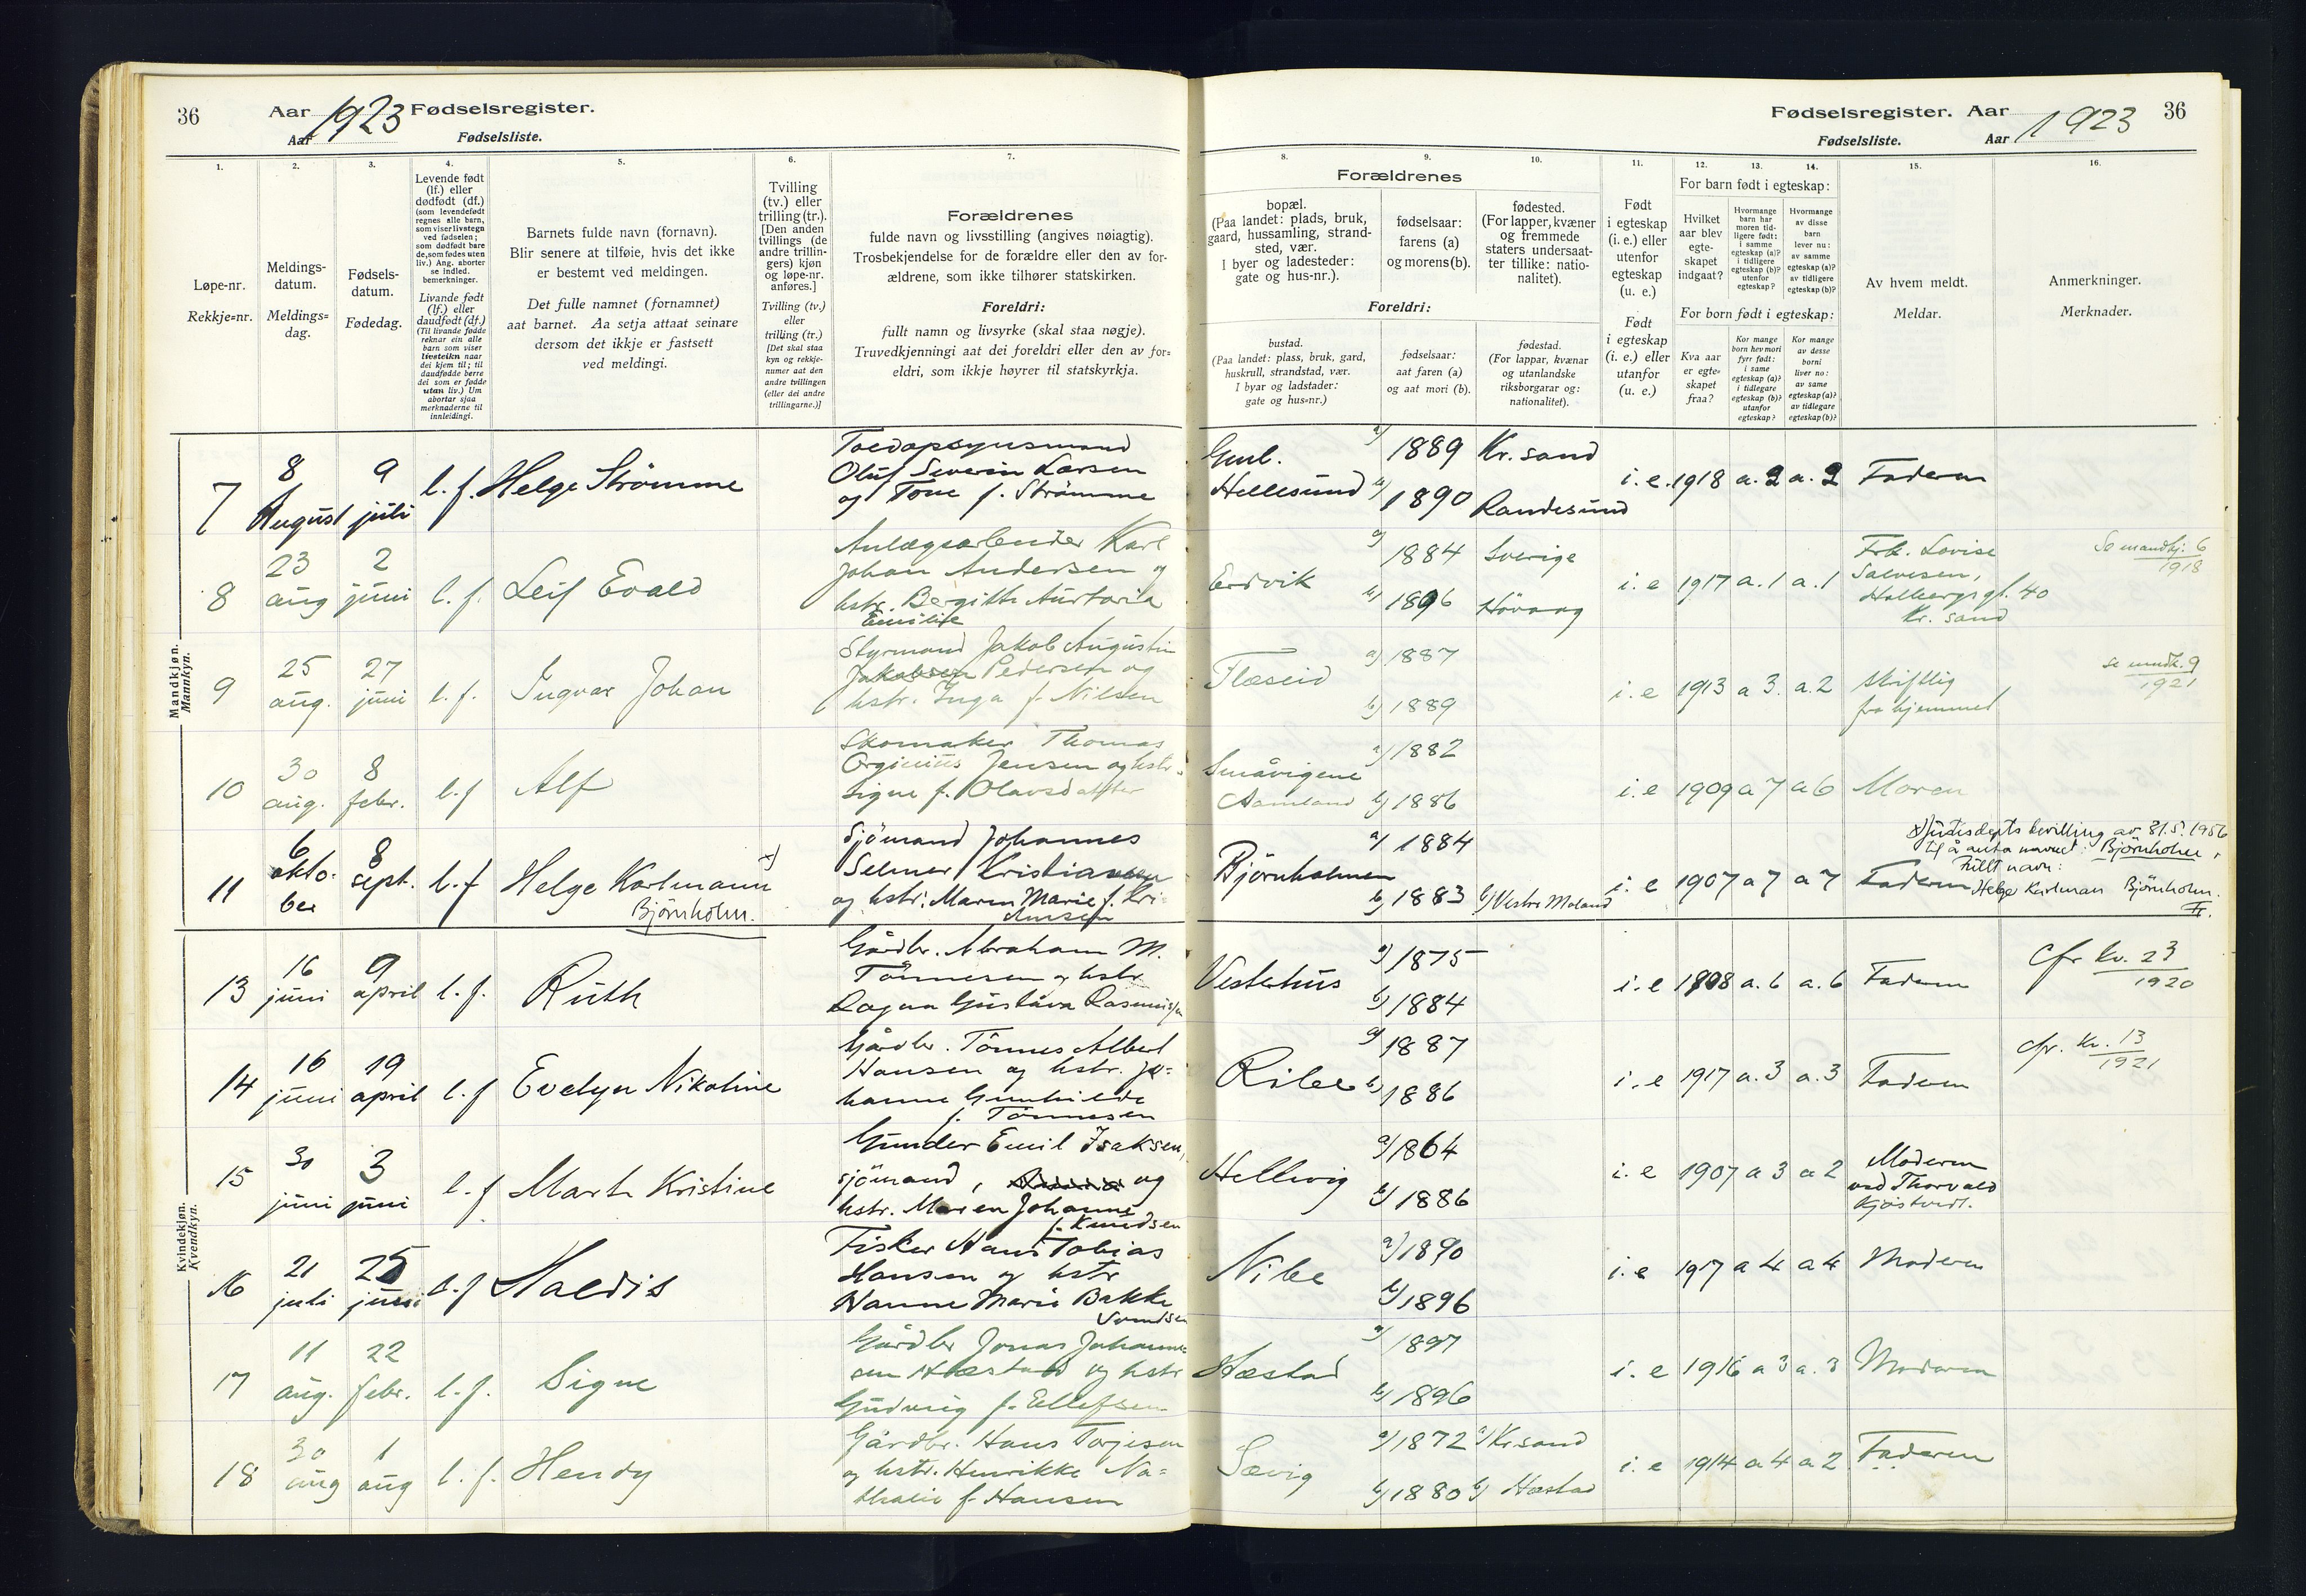 36
Aar 1923 Fødselsregister.
Aar Fødselsliste.
1.
2.
3.
4.
5.
6.
7.
Løpe-nr.
Rekkje=nr.
Meldings-
datum.
Meldings=
dag.
Fødsels-
datum.
Fødedag.
Levende født
(lf.) eller
dødfødt (df.)
(som levendefødt
regnes alle barn,
som viser livstegn
ved fødselen;
som dødfødt bare
de, som fødes uten
liv.) Ang. aborter
se indled.
bemerkninger.
Livande født
(lf.) eller
daudfødt (df.)
(Til livande fødde
reknar ein alle
born som viser
livsteikn naar
dei kjem til; til
daudfødde berre
dei som er fødde
utan liv.) Um
abortar sjaa
merknaderne til
innleidingi.
Barnets fulde navn (fornavn).
Blir senere at tilføie, hvis det ikke
er bestemt ved meldingen.
Det fulle namnet (fornamnet)
aat barnet. Aa setja attaat seinare
dersom det ikkje er fastsett
ved meldingi.
Tvilling
(tv.) eller
trilling (tr.).
[Den anden
tvillings (de
andre trillin-
gers) kjøn
og løpe-nr.
anføres.]
Tvilling (tv.)
eller
trilling (tr.)
[Det skal staa
kyn og rekkje-
numer aat den
andre tvillingen
(eller dei andre
trillingarne.)]
Forældrenes
fulde navn og livsstilling (angives nøiagtig).
Trosbekjendelse for de forældre eller den av for-
ældrene, som ikke tilhører statskirken.
Foreldri:
fullt namn og livsyrke (skal staa nøgje).
Truvedkjenningi aat dei foreldri eller den av for=
eldri, som ikkje høyrer til statskyrkja.
Fødselsregister. Aar 1923 36
Fødselsliste. Aar
8.
9.
10.
11.
12.
13.
14.
15.
16.
Forældrenes
bopæl.
(Paa landet: plads, bruk,
gaard, hussamling, strand-
sted, vær.
I byer og ladesteder:
gate og hus-nr.).
fødselsaar:
farens (a)
og morens (b).
fødested.
(For lapper, kvæner
og fremmede
staters undersaat-
ter tillike: natio-
nalitet).
Foreldri:
bustad.
(Paa landet: plass, bruk, gard,
huskrull, strandstad, vær.
I byar og ladstader:
gate og hus=nr.)
fødselsaar:
aat faren (a)
og aat mori (b).
fødestad.
(For lappar, kvænar
og utanlandske
riksborgarar og:
nationalitet).
Født
i egteskap
(i. e.) eller
utenfor
egteskap
(u. e.)
Født
i egteskap
(i. e.) eller
utanfor
egteskap
(u. e.)
For barn født i egteskap:
Hvilket
aar blev
egte-
skapet
indgaat?
Hvormange
barn har
moren tid-
ligere født:
i samme
egteskap (a)?
i tidligere
egteskap (b)?
utenfor
egteskap?
Hvormange
av disse
barn
lever nu:
av samme
egteskap (a)?
av tidligere
egteskap (b)?
For born født i egteskap:
Kva aar
er egte-
skapet
fraa?
Kor mange
born hev mori
fyrr født:
i same
egteskap (a)?
i tidlegare
egteskap (b)?
utanfor
egteskap?
Kor mange
av desse
borni
liver no:
av same
egteskap (a)?
av tidlegare
egteskap (b)?
Av hvem meldt.
Meldar.
Anmerkninger.
Merknader.
Mandkjøn.
Mannkyn.
7 8 August 9 juli l. f. Helge Strömme
Oluf Severin Larsen
og Tone f. Strömme
Hellesund a) 1889 Kr.sand
b) 1890 Randesund
i. e. 1918 a. 2 a. 2 Faderen
8 23 aug 2 juni l. f. Leif Evald
Anlægsarbeider Karl
Johan Andersen og
hstr. Bergitte
Emilie
Eidvik a) 1884 Sverige
b) 1896 Hövaag
i. e 1917 a. 1 a. 1
Frk. Lovise
Salvesen,
Holbergs gt. 40
Kr. sand
6
1918
9 25 aug. 27 juni l. f. Ingvar Johan
Styrmand Jakob Augustin
Jakobsen Pedersen og
hstr. Inga f. Nilsen
Flæseid a) 1887
b) 1889
i. e 1913 a 3. a. 2
skriftlig
fra hjemmet
9
1921
10 30 aug. 8 febr. l. f Alf
Skomaker Thomas
Jensen og hstr.
Signe f. Olavsdatter
Småvigene
Aamland a) 1882
b) 1886
i. e 1909 a 7 a 6 Moren
11 6 oktober 8 sept. l. f Helge Karlmann x)
Björnholm.
Sjömand Johannes
Selmer Kristiansen
og hstr. Maren Marie f. Kri-
Björnholmen a) 1884
b) 1883 b) Vestre Moland
i. e 1907 a 7 a 7 Faderen
x) Justisdepts bevilling av 31.5.1956
til å anta navnet: Björnholm,
Fullt navn:
Helge Karlman Björnholm.
Kvindekjøn.
Kvendkyn.
13 16 juni 9 april l. f. Ruth
Gårdbr. Abraham M.
Tönnesen og hstr.
Ragna Gustava Rasmussen
Vestehus a) 1875
b) 1884
i. e 1908 a. 6 a. 6 Faderen
Cfr kv. 23
1920
14 16 juni 19 april l. f Evelyn Nikoline
Gårdbr. Tönnes Albert
Hansen og hstr. Jo=
hanne Gunhilde
f. Tönnesen
Ribe a) 1887
b) 1886
i. e 1917 a. 3 a. 3 Faderen
cfr. kv. 13
1921
15 30 juni 3 juni l. f Marta Kristine
Gunder Emil Isaksen,
sjömand, og
hstr. Maren Johanne
f. Knudsen
Hellvig a) 1864
b) 1886
i. e 1907 a 3 a 2
Moderen
ved Thorvald
Kjöstvedt.
16 21 juli 25 juni l. f Haldis
Fisker Hans Tobias
Hansen og hstr
Hanne Marie Bakke
Svendsen
Nibe a) 1890
b) 1896
i. e 1917 a 4 a 4 Moderen
17 11 aug. 22 febr. l. f. Signe
Gårdbr Jonas Johanne-
sen Hæstad og hstr
Gudvig f. Ellefsen
Hæstad a) 1897
b) 1896
i. e 1916 a 3 a. 3 Moderen
18 30 aug 1 aug l. f. Hendy
Gårdbr. Hans Torjesen
og hstr. Henrikke Na=
thalie f. Hansen
Sævig a) 1872 a) Kr.sand
b) 1880 b) Hæstad
i. e 1914 a 4 a 2 Faderen